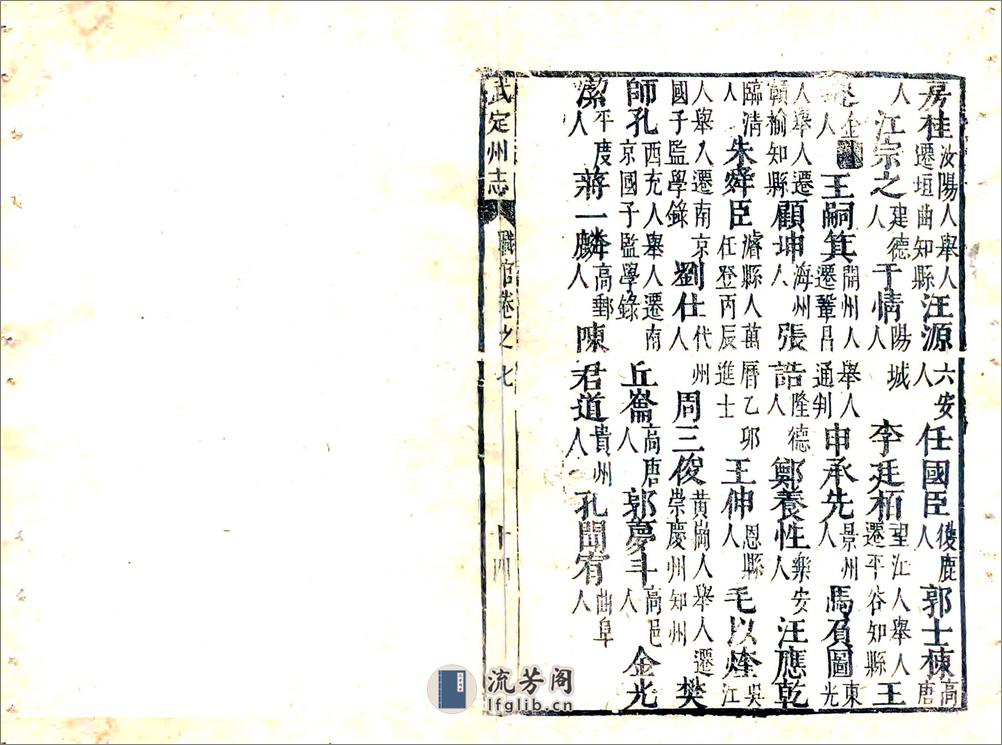 房桂汝陽人舉人遷垣曲知縣汪源六安人任國臣獲鹿人郭士棟高唐
人江宗之建德人于情陽城人李廷栢望江人舉人遷平谷知縣王
金人王嗣箕開州人舉人遷鞏昌通判申承先景州人馬負圖東光
人舉人遷贛榆知縣顧坤海州人張誥隆德人鄭養性樂安人汪應乾
臨清人朱舜臣濬縣人萬曆乙卯任登丙辰進士王仲恩縣人毛以煃吳江
人舉人遷南京國子監學錄劉仕代州人周三俊黃崗人舉人遷崇慶州知州樊
師孔西充人舉人遷南京國子監學錄丘崙高唐人郭夢斗高邑人金光
潔平度人蔣一麟高郵人陳君道貴州人孔聞宥曲阜人
武定州志 職官卷之七 十四
流芳阁
lfglib.cn